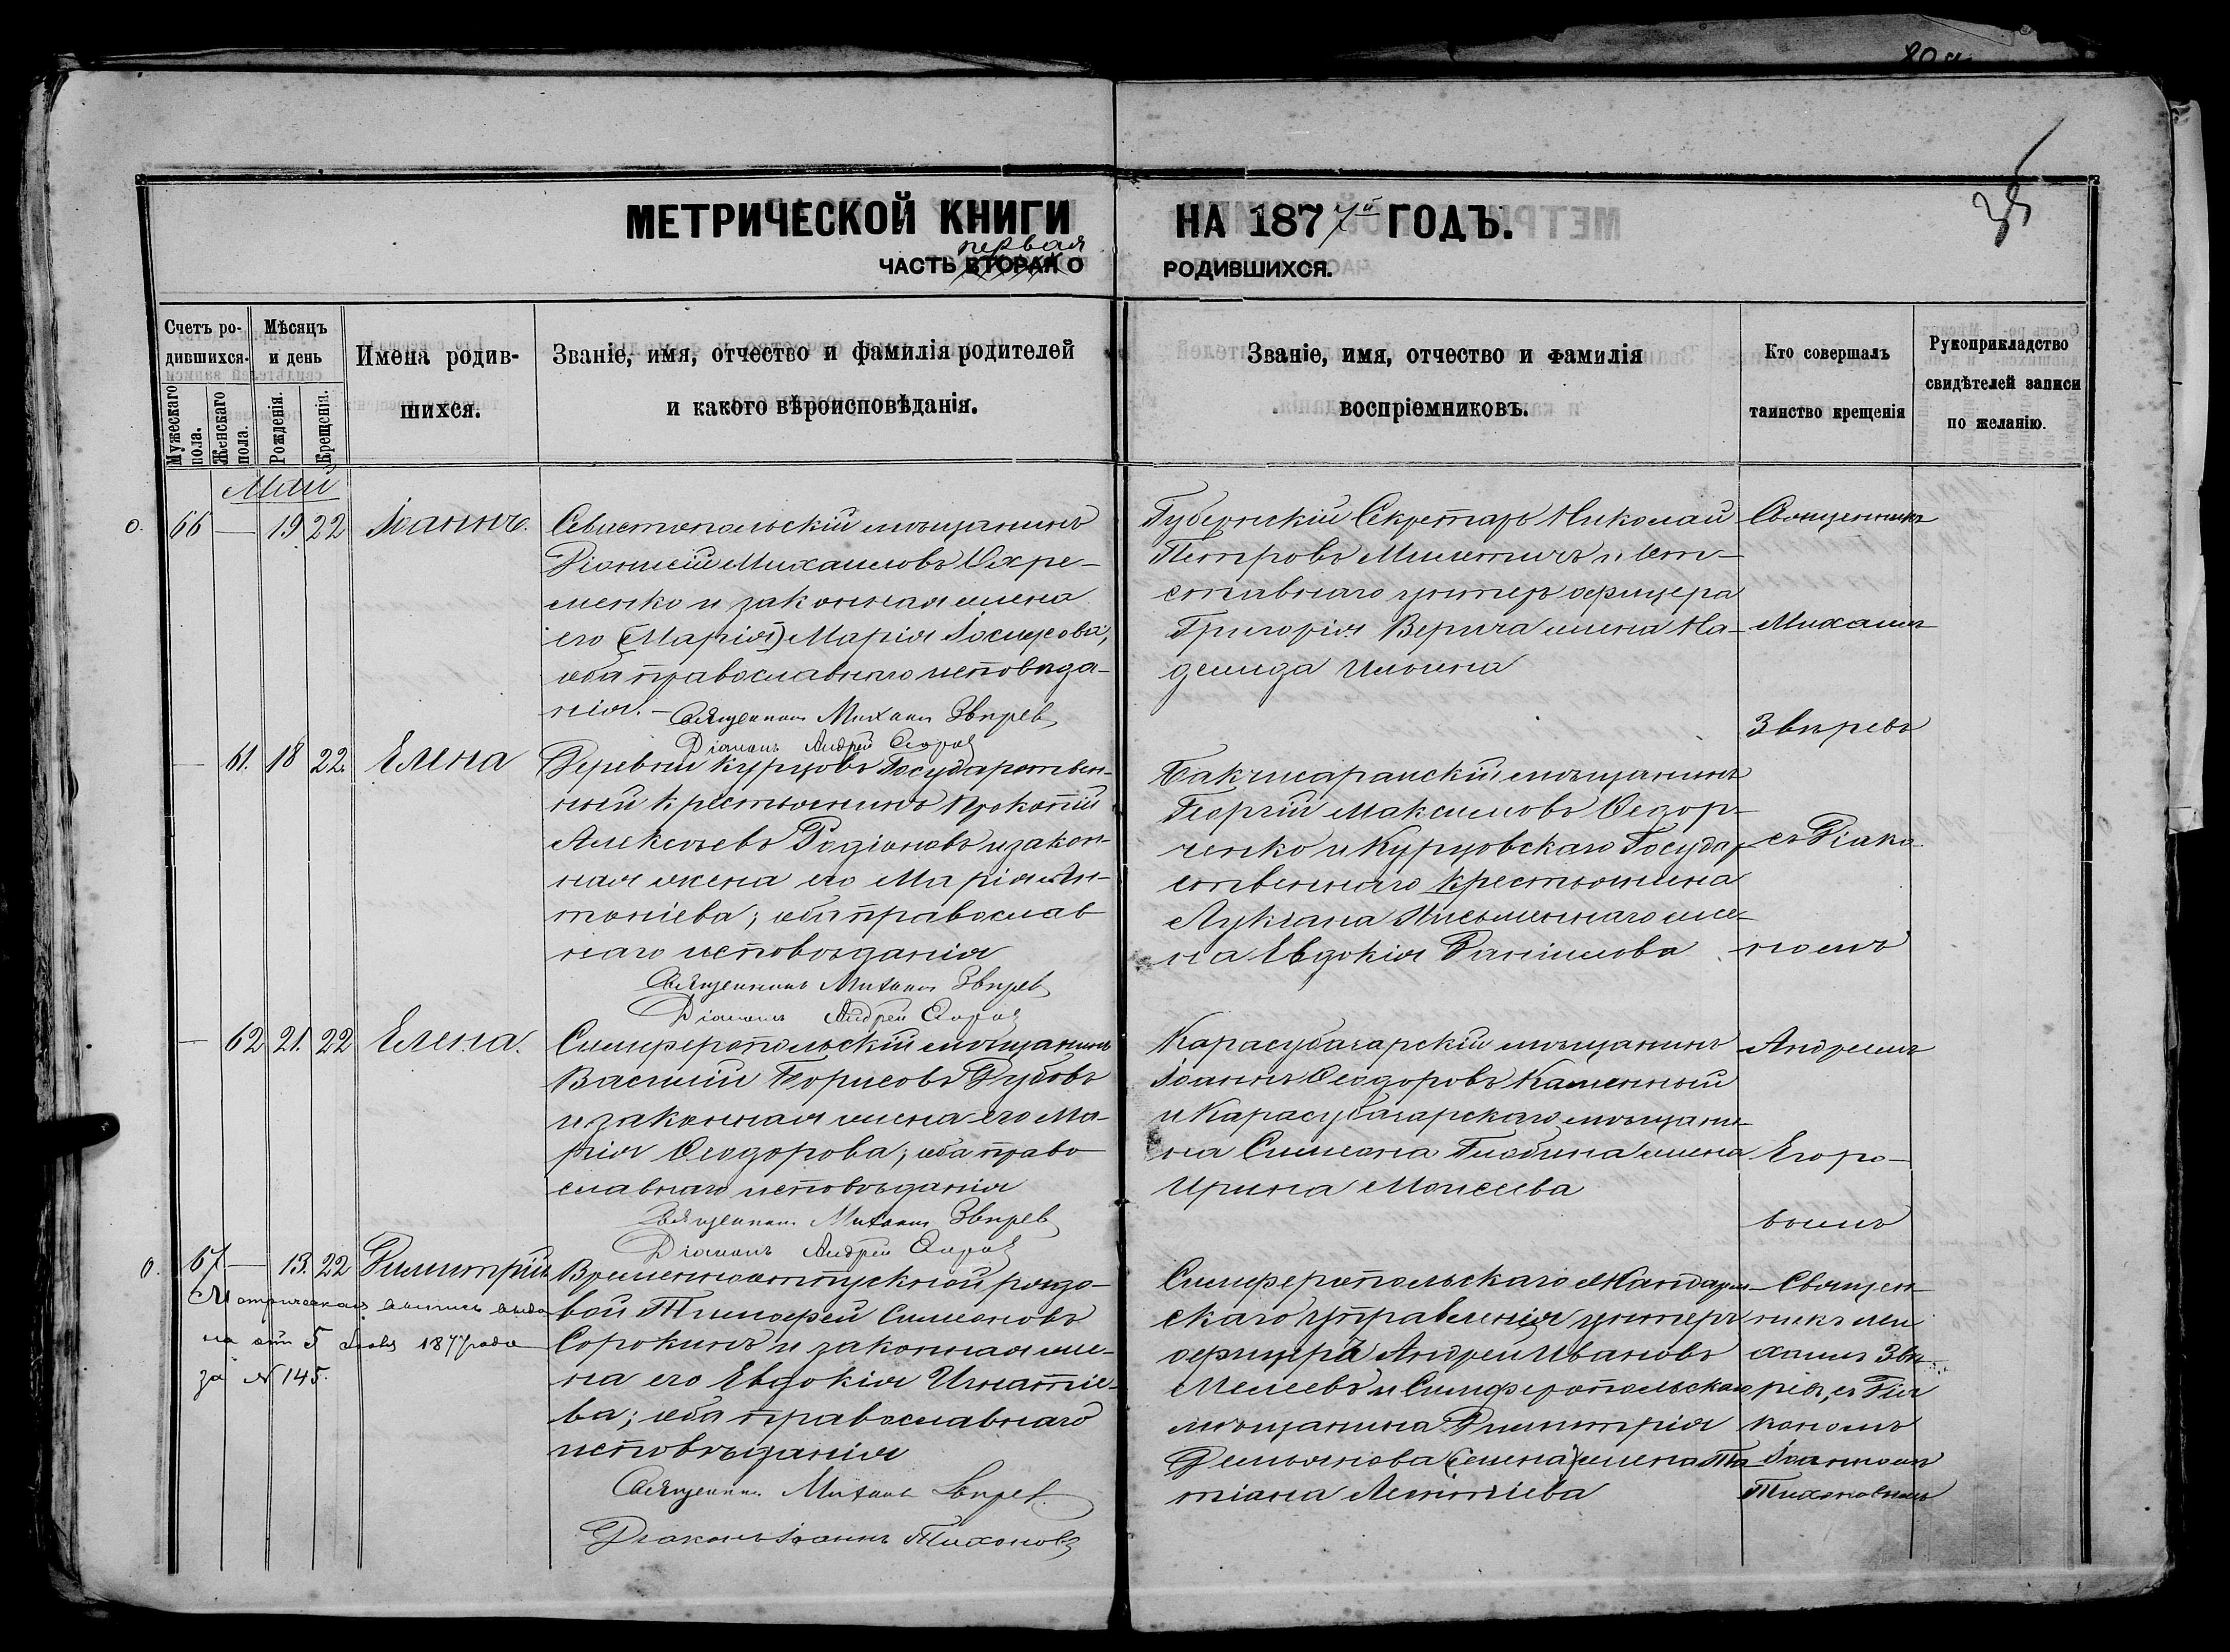 МЕТРИЧЕСКОЙ КНИГИ НА 1877й ГОДЪ.
35
первая
ЧАСТЬ ВТОРАЯ О РОДИВШИХСЯ.
Счетъ родившихся.
Мужескаго пола.
Женскаго пола.
Мѣсяцъ и день
Рожденія.
Крещенія.
Имена родив-
шихся.
Званіе, имя, отчество и фамилія родителей
и какого вѣроисповѣданія.
Званіе, имя, отчество и фамилія
воспріемниковъ.
Кто совершалъ
таинство крещенія
Рукоприкладство
свидѣтелей записи
по желанію.
Май
о. 66 — 19 22 Іоаннъ.
Севастопольскій мѣщанинъ
Діонисій Михаиловъ Охре-
менко и законная жена
его (Марія) Марія Іосифова,
оба православнаго исповѣда-
нія. —
Священникъ Михаилъ Звѣрев
Діаконъ Андрей Егоров
Губернскій Секретарь Николай
Петровъ Милетичъ и От-
ставнаго унтеръ офицера
Григорія Верича жена На-
дежда Ильина
Священникъ
Михаилъ
Звѣревъ
— 61. 18 22. Елена
Деревни Курцовъ Государствен-
ный крестьянинъ Прокопій
Алексѣевъ Родіоновъ и закон-
ная жена его Марія Ан-
тоніева; оба православ
наго исповѣданія
Священникъ Михаилъ Звѣрев
Діаконъ Андрей Егоров
Бакчисарайскій мѣщанинъ
Георгій Максимовъ Ѳедор-
ченко и Курцовскаго Государ
ственнаго крестьянина
Лукіана Письменнаго же-
на Евдокія Даніилова
съ Діако-
номъ
— 62 21. 22 Елена.
Симферопольскій мѣщанинъ
Василій Борисовъ Дубовъ
и законная жена его Ма-
рія Ѳеодорова; оба право
славнаго исповѣданія
Священникъ Михаилъ Звѣрев
Діаконъ Андрей Егоров
Карасубазарскій мѣщанинъ
Іоаннъ Ѳеодоровъ Каменный
и Карасубазарскаго мѣщани-
на Симеона жена
Ирина Моисеева
Андреемъ
Егоро-
вымъ
о. 67 — 13. 22 Димитрій
Метрическая выпись выда
на от 5 1877 года
за № 145.
Временноотпускной рядо-
вой Тимофей Симеоновъ
Сорокинъ и законная же-
на его Евдокія Игнатіе-
ва; оба православнаго
исповѣданія
Священникъ Михаилъ Звѣрев.
Діаконъ Іоаннъ Тихоновъ
Симферопольскаго Жандарм-
скаго управленія унтеръ
офицеръ Андрей Ивановъ
и Симферопольскаго
мѣщанина Димитрія
Демьянова (жена) жена Та
тіана Леонтіева
Священ-
никъ Ми
хаилъ Звѣ-
ревъ, съ Діа
кономъ
Іоанномъ
Тихоновымъ